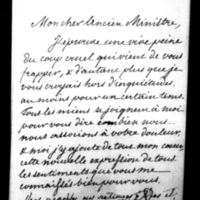 Mon cher Ancien Ministre,
J'éprouve une vive peine
du coup cruel qui vient de vous
frapper, & d'autant plus que je
vous croyais hors d'inquiétudes,
au moins pour un certain temps.
Tous les miens se joignent à moi
pour vous dire combien nous
nous associons à votre douleur,
& moi j'y ajoute de tous mon coeur
cette nouvelle expression de tous
les sentiments que vous me
connaissez bien pour vous.